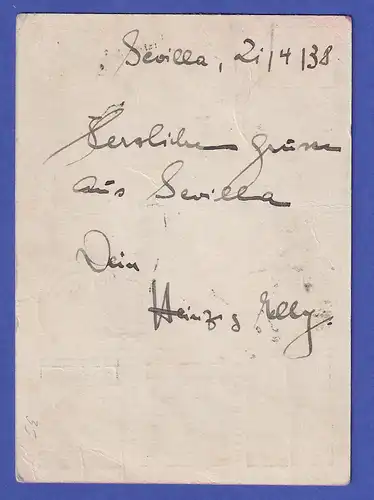 Sevilla, 21/4/38
Herzlichen Gruss
aus Sevilla
Dein
Heinz & Elly.
35